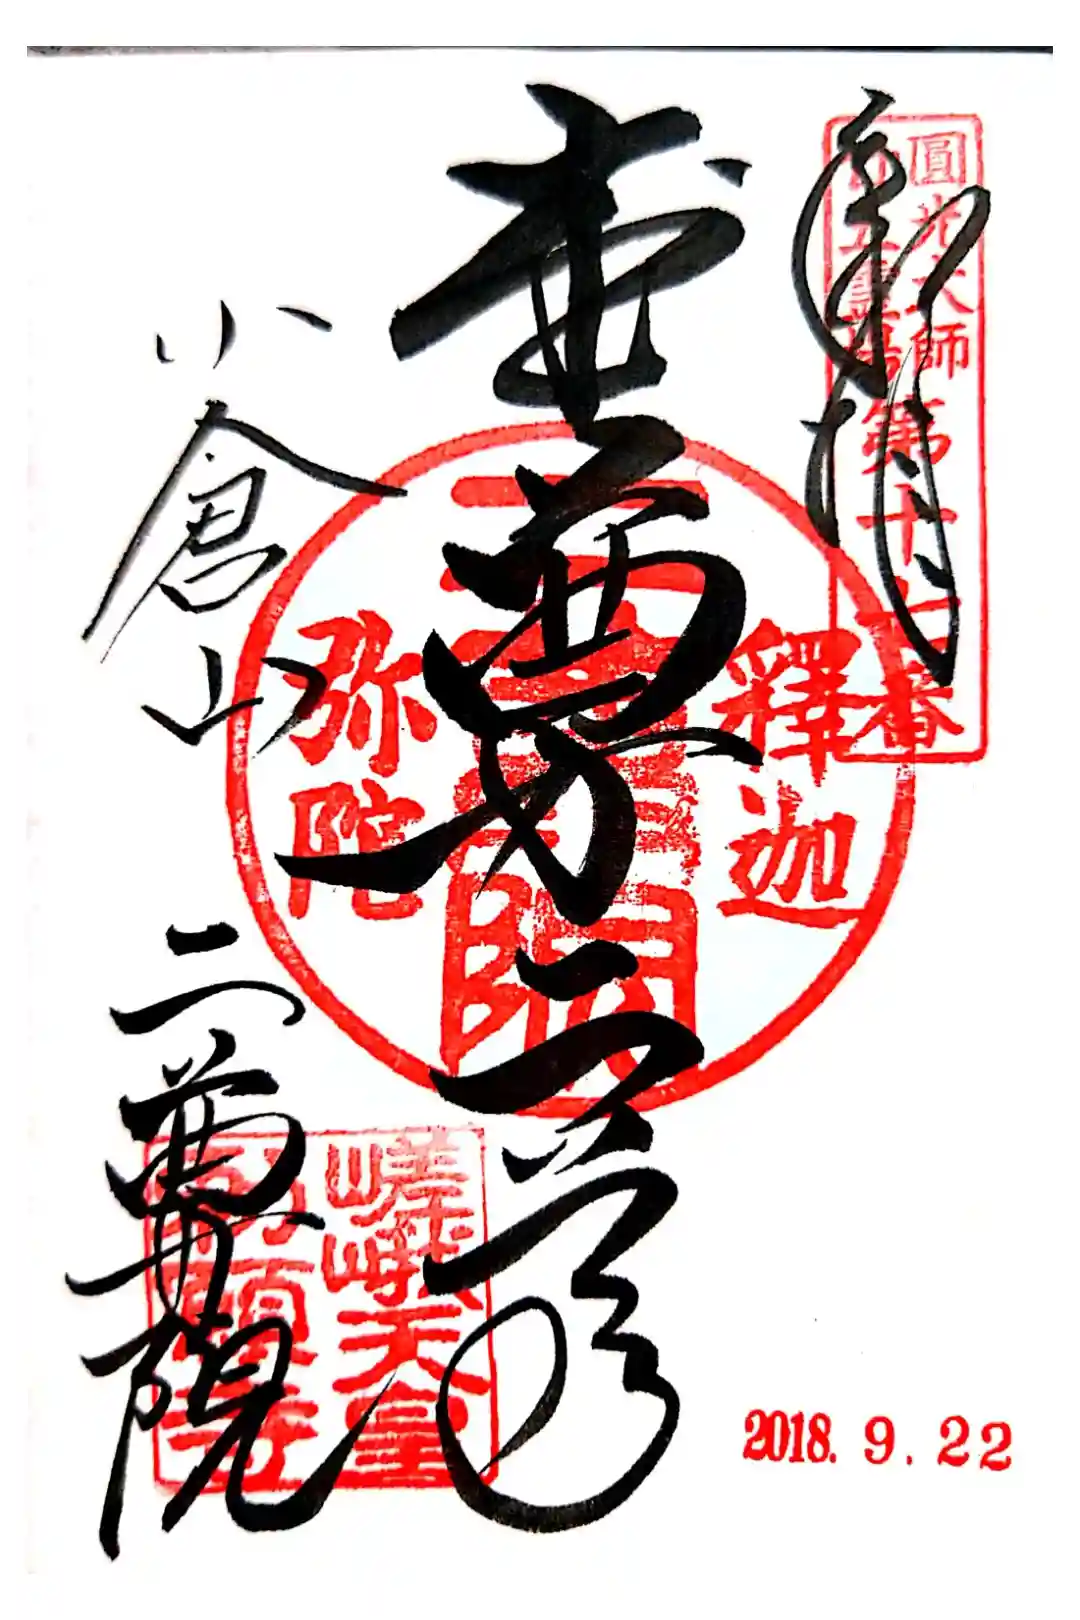 奉拝
圓光大師
廿五霊場第十七番
釋迦
二尊院
弥陀
小倉山
二尊院
嵯峨天皇
勅願寺
2018. 9. 22